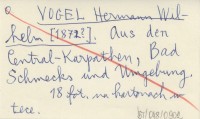 VOGEL Hermann Wil-
helm [1872?]. Aus den
Central-Karpathen, Bad
Schmecks und Umgebung.
18 fot. na kartonach in
tece.